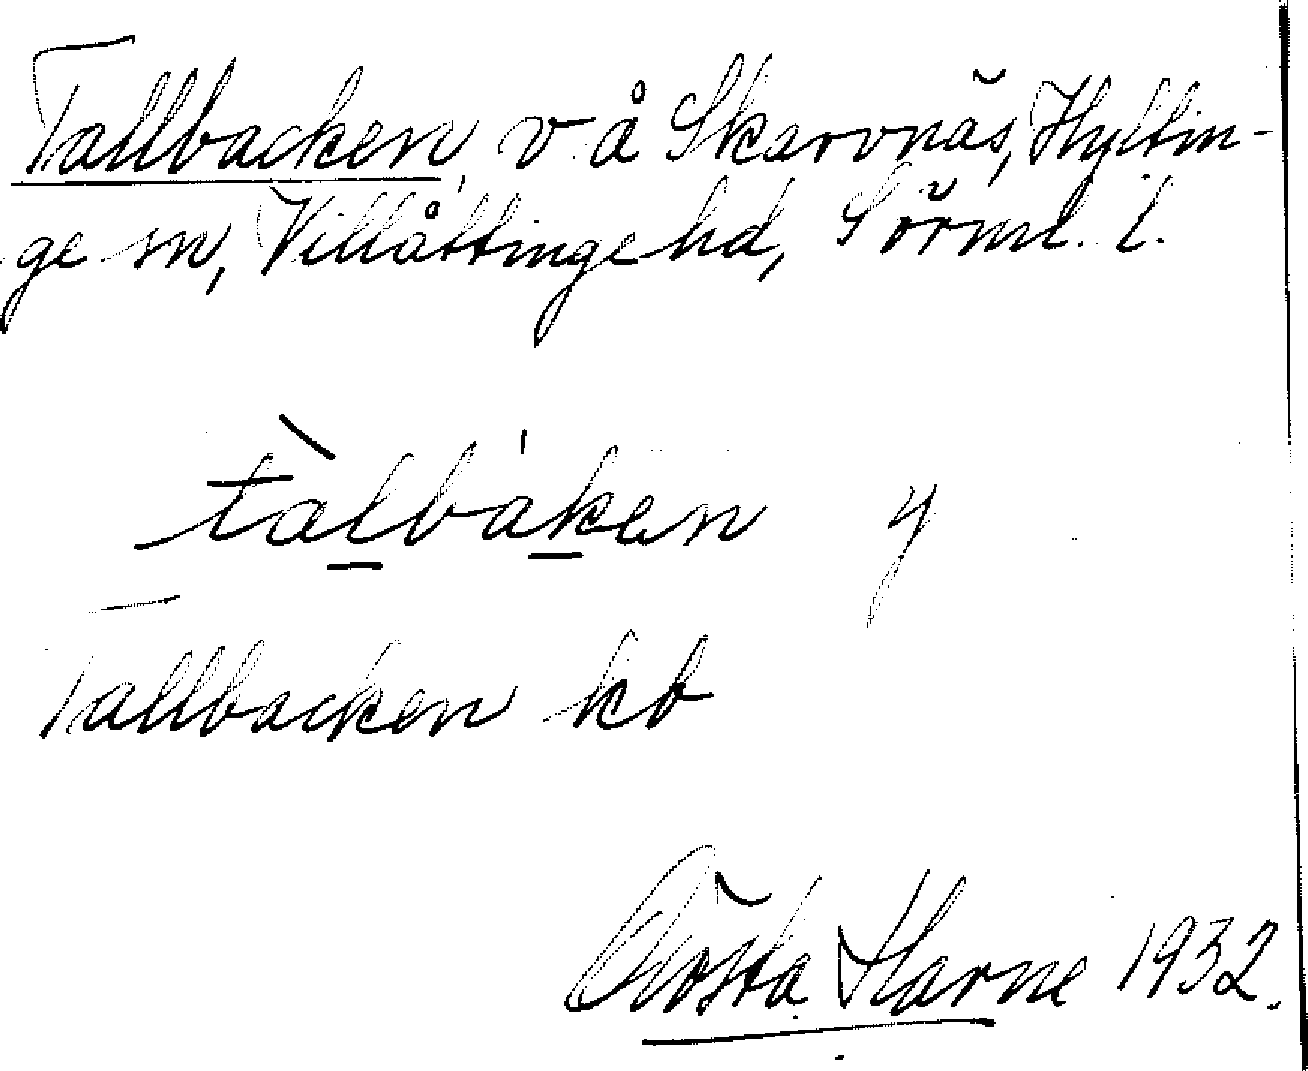 Tallbacken, v. å Skarvnäs, Hyltin-
ge sn, Villåttinge hd, Sörml. l.
tàlbáken y
Tallbacken kb
Gösta Harne 1932.